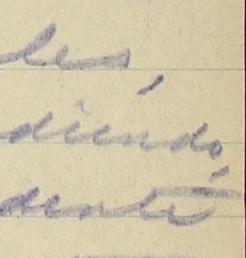 les,
diendo,
dente